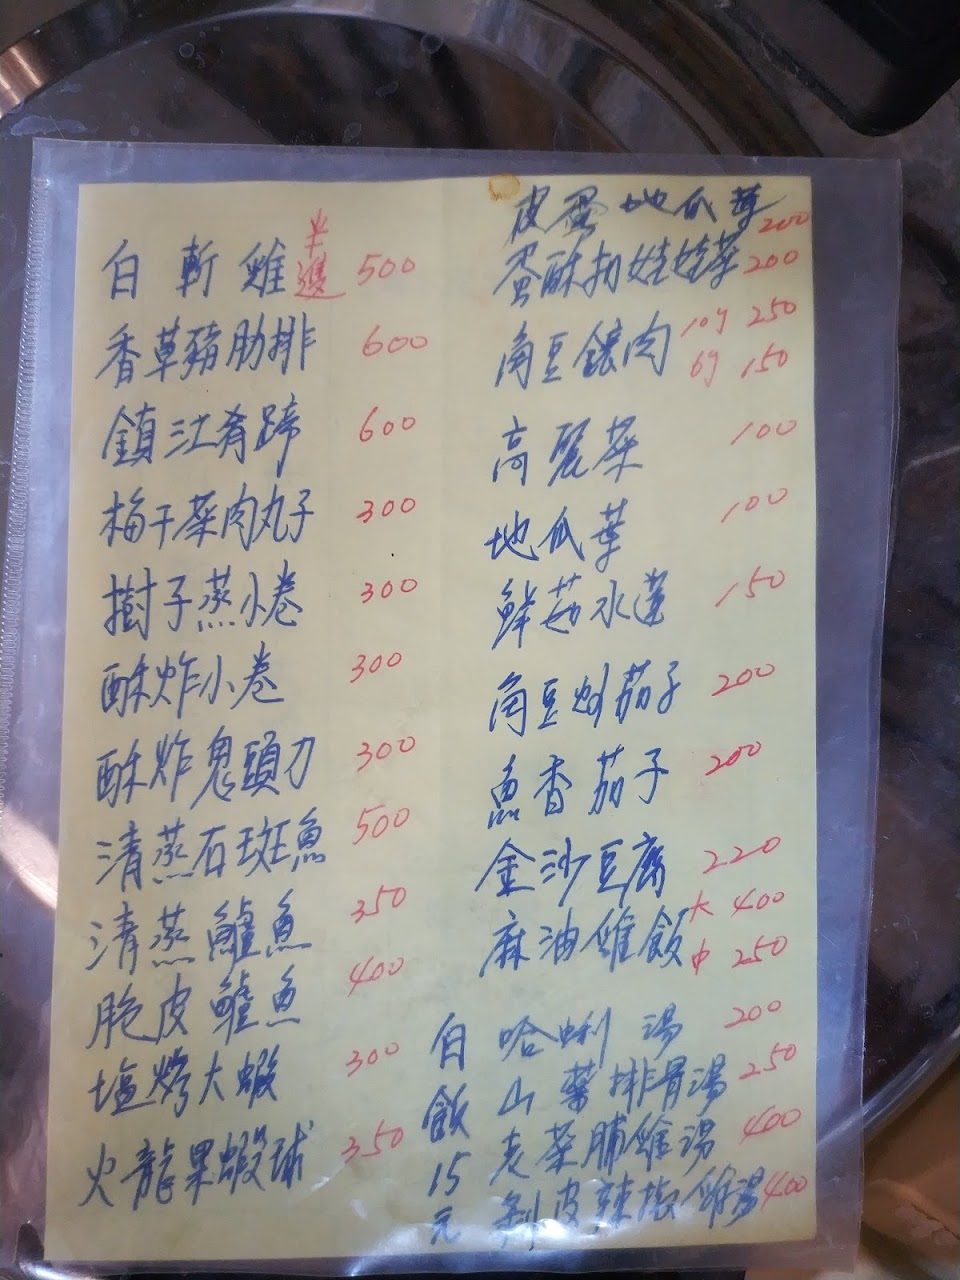 白斬雞 半邊 500
香草豬肋排 600
鎮江肴蹄 600
梅干菜肉丸子 300
樹子蒸小卷 300
酥炸小卷 300
酥炸鬼頭刀 300
清蒸石斑魚 500
清蒸鱸魚 350
脆皮鱸魚 400
塩烤大蝦 300
火龍果蝦球 350
皮蛋地瓜葉 200
蛋酥扣娃娃菜 200
角豆鑲肉 10个 250
6个 150
高麗菜 100
地瓜葉 100
鮮菇水蓮 150
角豆炒茄子 200
魚香茄子 200
金沙豆腐 220
麻油雞飯 大 400
中 250
哈蜊湯 200
山藥排骨湯 250
菜脯雞湯 400
剝皮辣椒雞湯 400
白飯15元